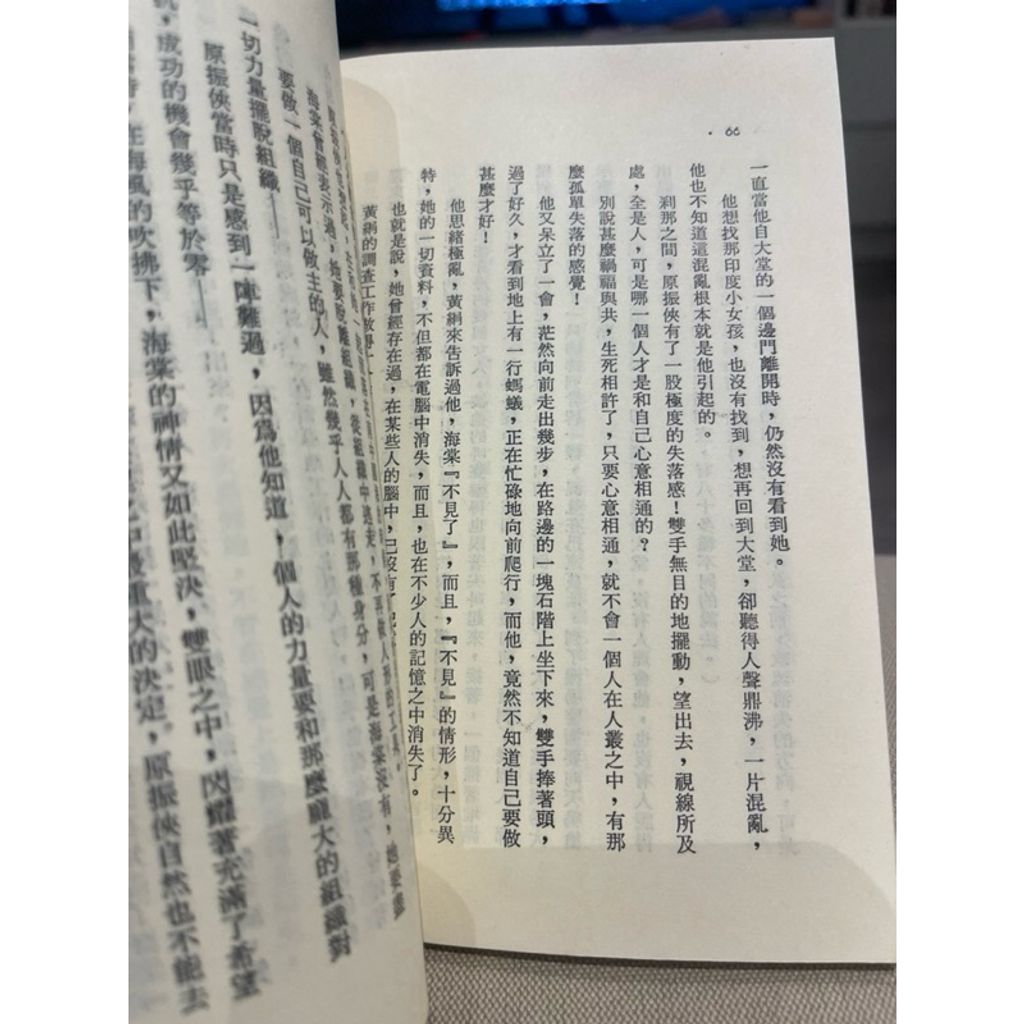 66
一直當他自大堂的一個邊門離開時，仍然沒有看到她。
他想找那印度小女孩，也沒有找到，想再回到大堂，卻聽得人聲鼎沸，一片混亂，
他也不知道這混亂根本就是他引起的。
剎那之間，原振俠有了一股極度的失落感！雙手無目的地擺動，望出去，視線所及
處，全是人，可是哪一個人才是和自己心意相通的？
別說甚麼禍福與共，生死相許了，只要心意相通，就不會一個人在人叢之中，有那
麼孤單失落的感覺！
他又呆立了一會，茫然向前走出幾步，在路邊的一塊石階上坐下來，雙手捧著頭，
過了好久，才看到地上有一行螞蟻，正在忙碌地向前爬行，而他，竟然不知道自己要做
甚麼才好！
他思緒極亂，黃絹來告訴過他，海棠『不見了』，而且，『不見』的情形，十分異
特，她的一切資料，不但都在電腦中消失，而且，也在不少人的記憶之中消失了。
也就是說，她曾經存在過，在某些人的腦中，已沒有了
黃絹的調查工作
海棠曾經表示過，她要脫離組織，從組織中逃走，不再做人形的工具，
要做一個自己可以做主的人，雖然幾乎人人都有那種身分，可是海棠沒有，她要盡
一切力量擺脫組織——
原振俠當時只是感到一陣難過，因為他知道，一個人的力量要和那麼龐大的組織對
抗，成功的機會幾乎等於零——
在海風的吹拂下，海棠的神情又如此堅決，雙眼之中，閃耀著充滿了希望
重大的決定，原振俠自然也不能去